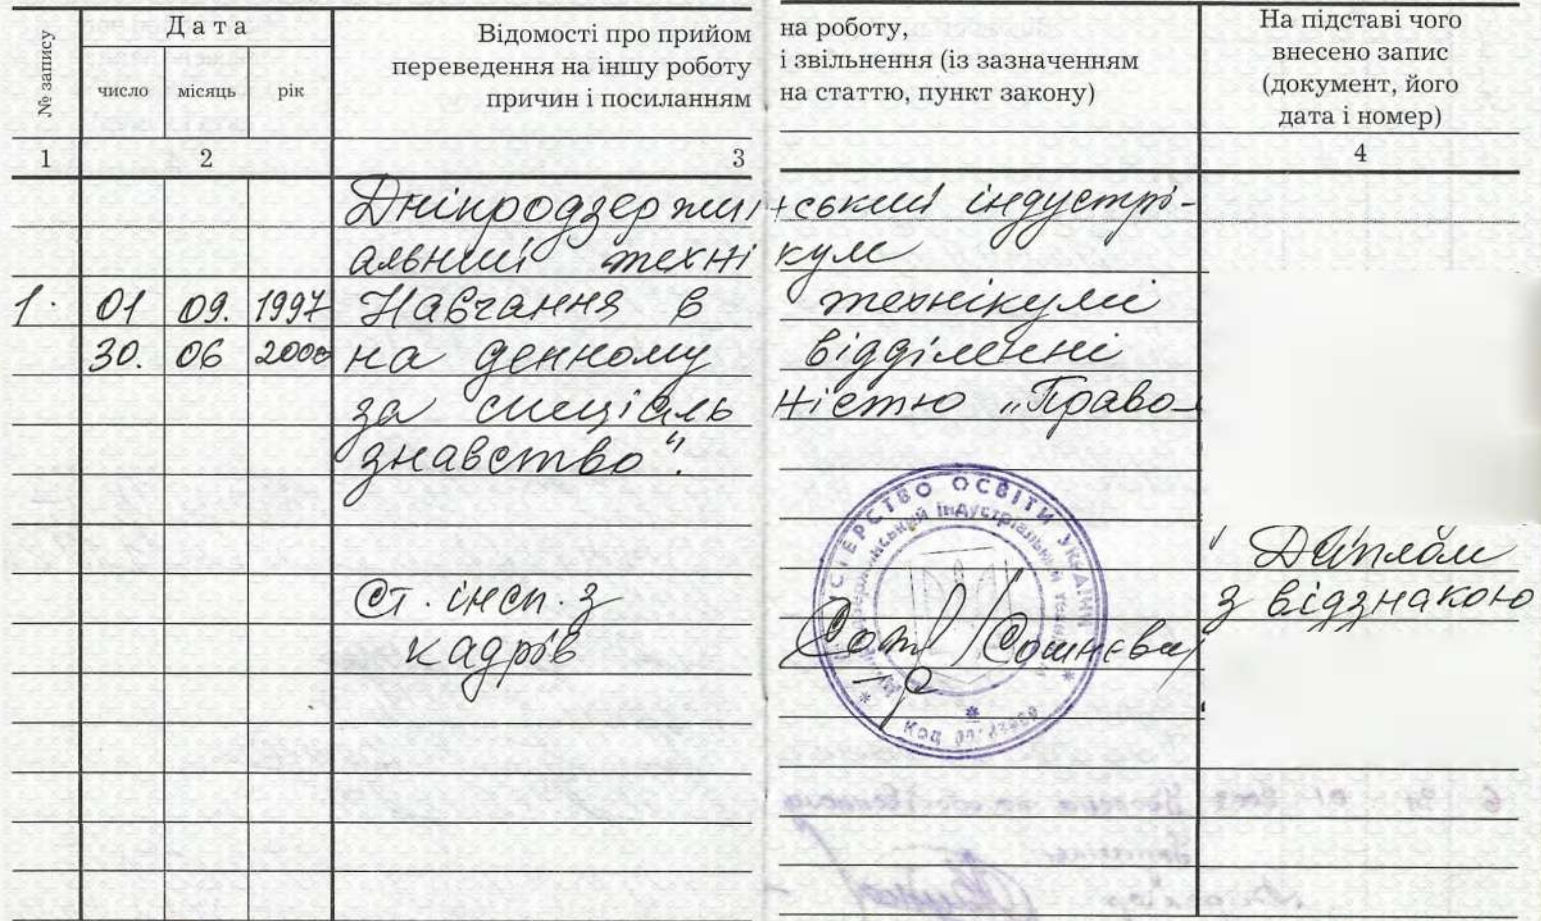 № запису
Дата
число місяць рік
Відомості про прийом на роботу,
переведення на іншу роботу і звільнення (із зазначенням
причин і посиланням на статтю, пункт закону)
На підставі чого
внесено запис
(документ, його
дата і номер)
1 2 3 4
Дніпродзержинський індустрі-
альний технікум
1. 01 09. 1997 Навчання в технікумі
30. 06 2000 на денному відділенні
за спеціальністю „Право-
знавство".
МІНІСТЕРСТВО ОСВІТИ УКРАЇНИ
індустріальний
Код
Диплом
з відзнакою
Ст. інсп. з
кадрів